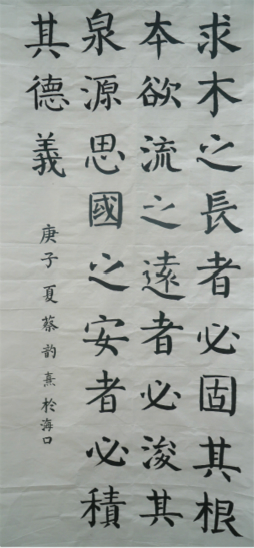 求木之長者必固其根
本欲流之遠者必浚其
泉源思國之安者必積
其德義
庚子夏蔡韵熹於海口